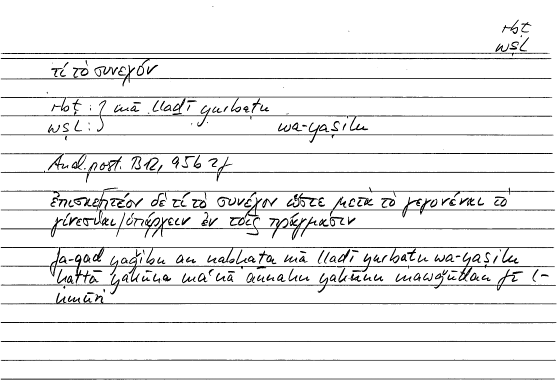 rbṭ
wṣl
τί τὸ συνεχόν
rbṭ : } mā lladī yurbaṭu
wṣl : } wa-yaṣilu
An. post. B12, 95b 2f
ἐπισκεπτέον δὲ τί τὸ συνέχον ὥστε μετὰ τὸ γεγονέναι τὸ
γίνεσθαι/ὑπάρχειν ἐν τοῖς πράγμασιν
fa-qad yaǧibu an nabḥaṯa mā lladī yurbaṭu wa-yaṣilu
ḥattā yakūna maʿnā annahu yakūnu mawǧūdan fī l-
umūri